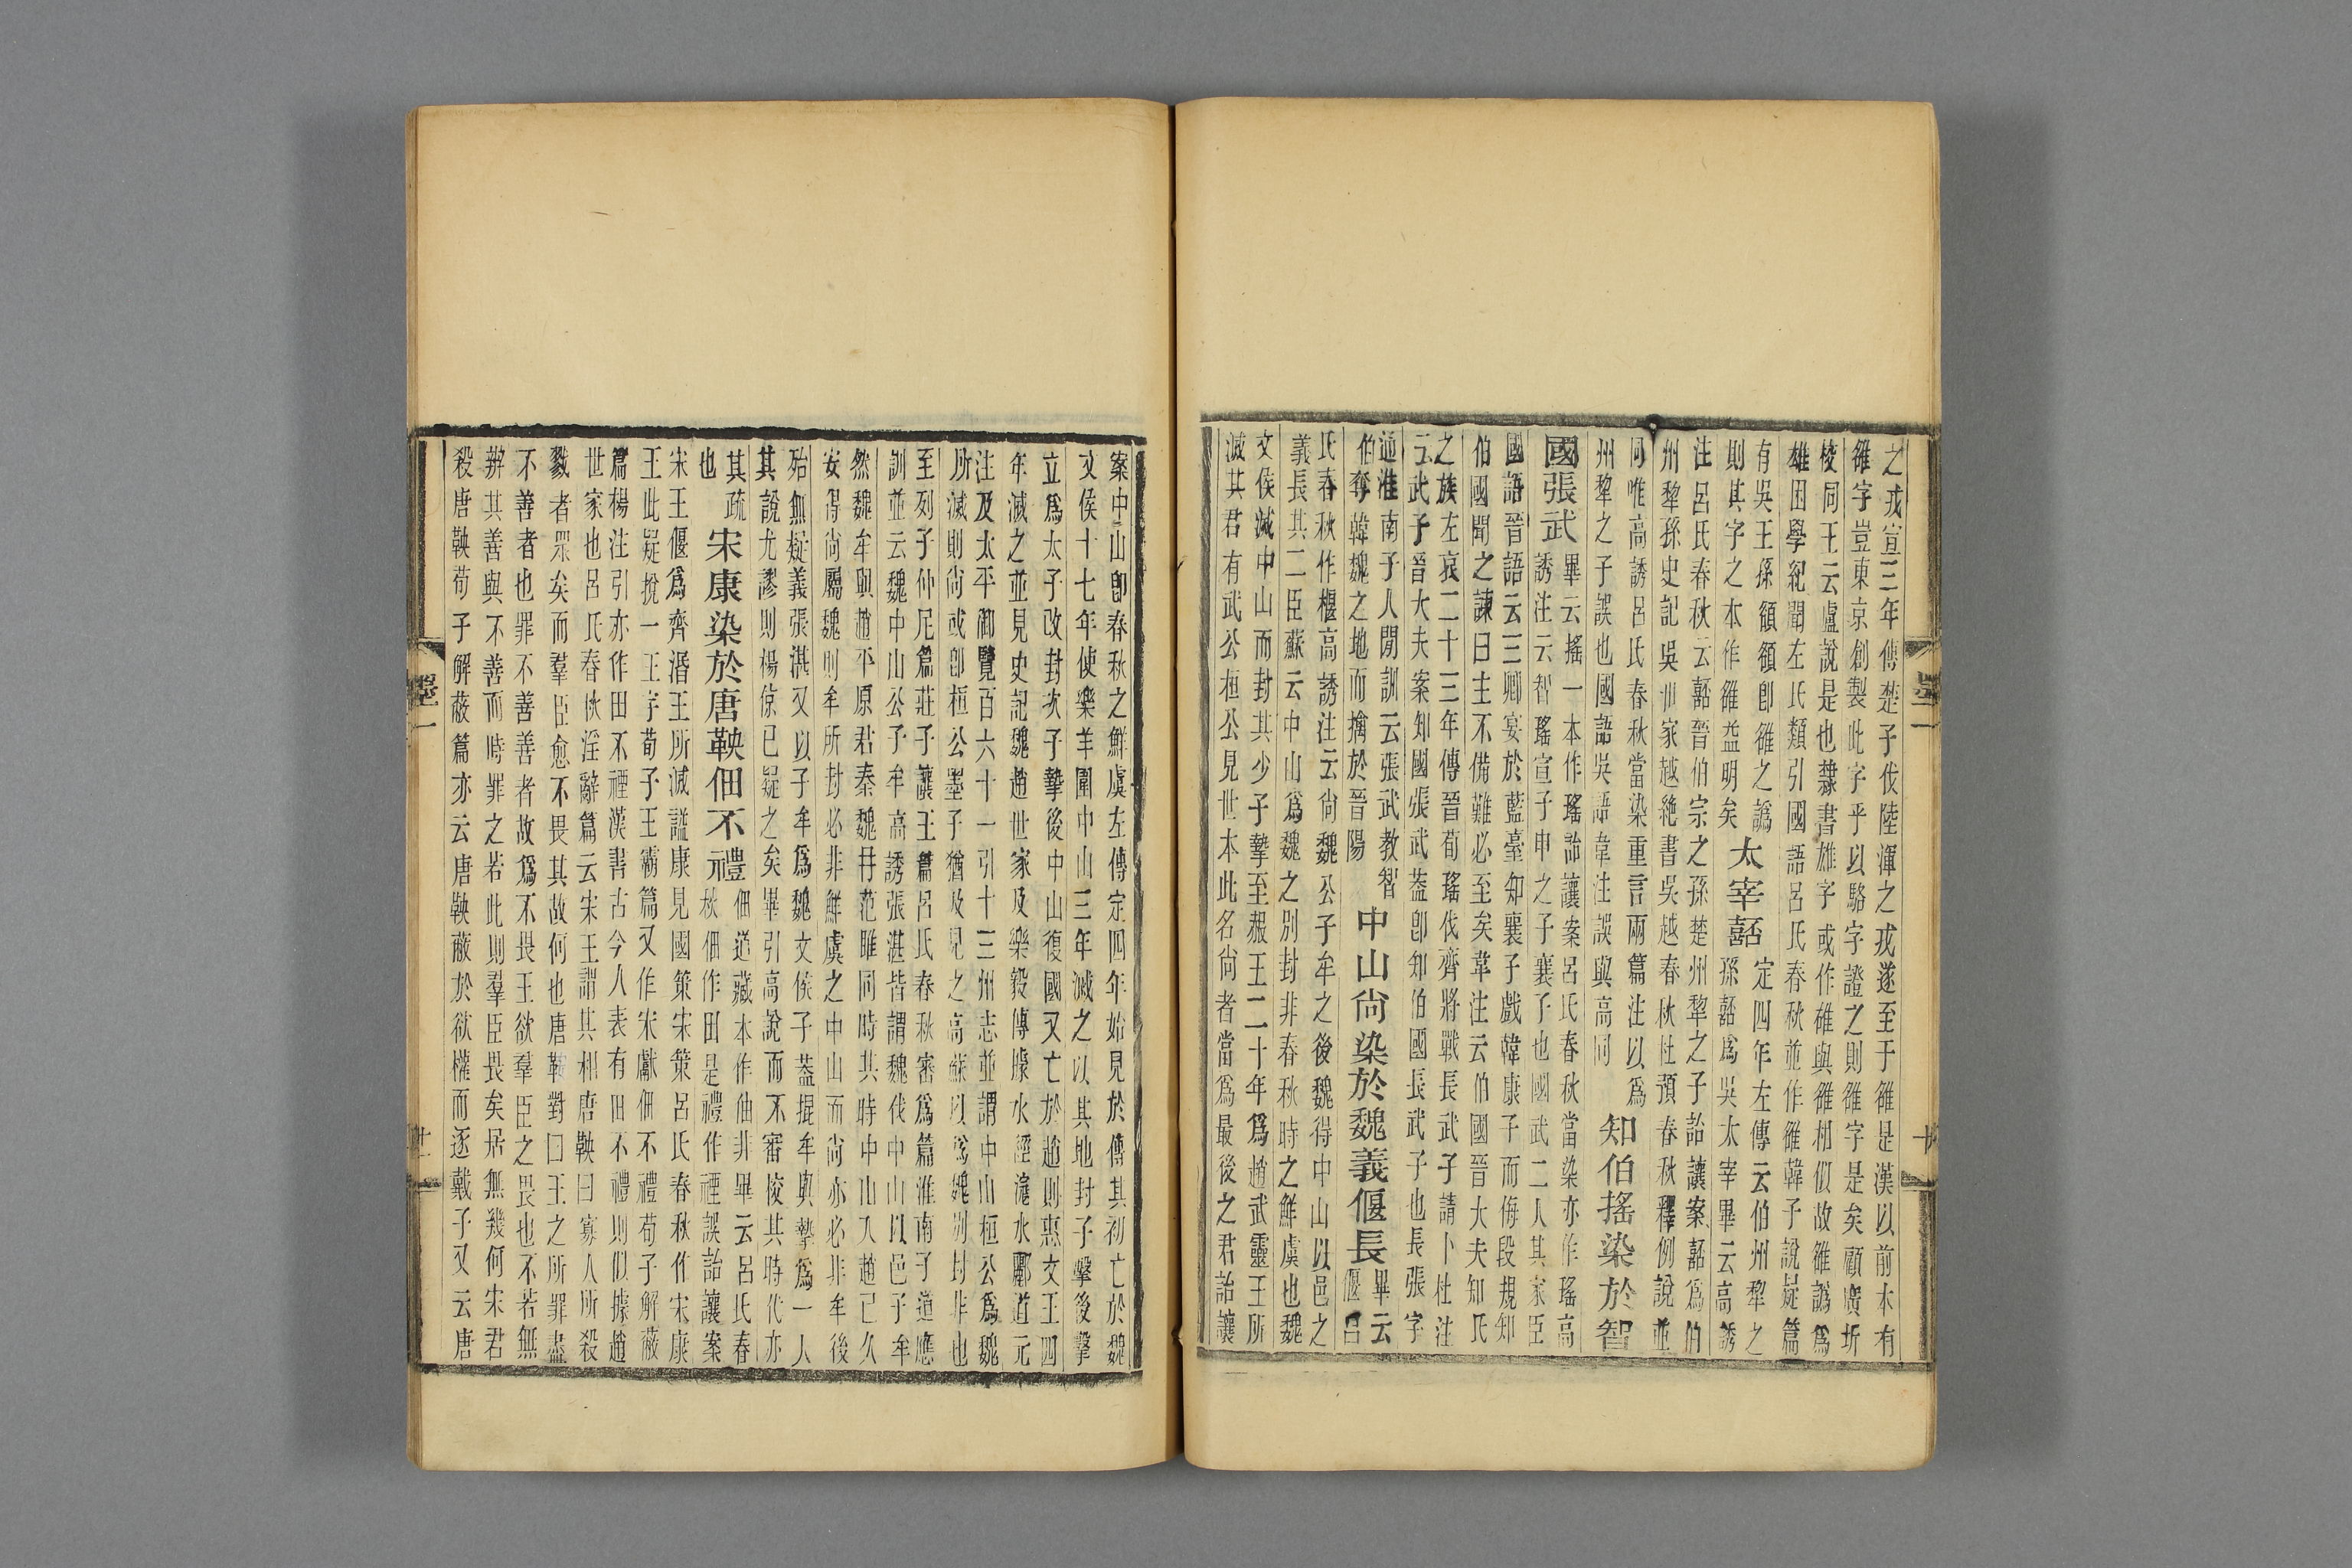 之戎宣三年傳楚子伐陸渾之戎遂至于雒是漢以前本有
雒字豈東京創製此字乎以駱字證之則雒字是矣顧廣圻
校同王云盧說是也隸書雄字或作碓與雒相似故雒譌爲
雄困學紀聞左氏類引國語呂氏春秋並作雒韓子說疑篇
有吳王孫頟頟卽雒之譌
則其字之本作雒益明矣
太宰嚭
定四年左傳云伯州犂之
孫嚭爲吳太宰畢云高誘
注呂氏春秋云嚭晉伯宗之孫楚州犂之子詒讓案嚭爲伯
州犂孫史記吳世家越絶書吳越春秋杜預春秋釋例說並
同唯高誘呂氏春秋當染重言兩篇注以爲
州犂之子誤也國語吳語韋注誤與高同
知伯搖染於智
國張武
畢云搖一本作瑤詒讓案呂氏春秋當染亦作瑤高
誘注云智瑤宣子申之子襄子也國武二人其家臣
國語晉語云三卿宴於藍臺知襄子戲韓康子而侮段規知
伯國聞之諫曰主不備難必至矣韋注云伯國晉大夫知氏
之族左哀二十三年傳晉荀瑤伐齊將戰長武子請卜杜注
云武子晉大夫案知國張武蓋卽知伯國長武子也長張字
通淮南子人閒訓云張武教智
伯奪韓魏之地而擒於晉陽
中山尚染於魏義偃長
畢云
偃呂
氏春秋作椻高誘注云尚魏公子牟之後魏得中山以邑之
義長其二臣蘇云中山爲魏之別封非春秋時之鮮虞也魏
文侯滅中山而封其少子摯至赧王二十年爲趙武靈王所
滅其君有武公桓公見世本此名尚者當爲最後之君詒讓
墨一
十
案中山卽春秋之鮮虞左傳定四年始見於傳其初亡於魏
文侯十七年使樂羊圍中山三年滅之以其地封子擊後擊
立爲太子改封次子摯後中山復國又亡於趙則惠文王四
年滅之並見史記魏趙世家及樂毅傳據水經滱水酈道元
注及太平御覽百六十一引十三州志並謂中山桓公爲魏
所滅則尚或卽桓公墨子猶及見之高蘇以爲魏別封非也
至列子仲尼篇莊子讓王篇呂氏春秋審爲篇淮南子道應
訓並云魏中山公子牟高誘張湛皆謂魏伐中山以邑子牟
然魏牟與趙平原君秦魏冉范雎同時其時中山入趙已久
安得尚屬魏則牟所封必非鮮虞之中山而尚亦必非牟後
殆無疑義張湛又以子牟爲魏文侯子蓋掍牟與摯爲一人
其說尤謬則楊倞已疑之矣畢引高說而不審校其時代亦
其疏
也
宋康染於唐鞅佃不禮
佃道藏本作伷非畢云呂氏春
秋佃作田是禮作禋誤詒讓案
宋王偃爲齊湣王所滅謚康見國策宋策呂氏春秋作宋康
王此疑挩一王字荀子王霸篇又作宋獻佃不禮荀子解蔽
篇楊注引亦作田不禋漢書古今人表有田不禮則似據趙
世家也呂氏春秋淫辭篇云宋王謂其相唐鞅曰寡人所殺
戮者眾矣而羣臣愈不畏其故何也唐鞅對曰王之所罪盡
不善者也罪不善善者故爲不畏王欲羣臣之畏也不若無
辨其善與不善而時罪之若此則羣臣畏矣居無幾何宋君
殺唐鞅荀子解蔽篇亦云唐鞅蔽於欲權而逐戴子又云唐
墨一
十一